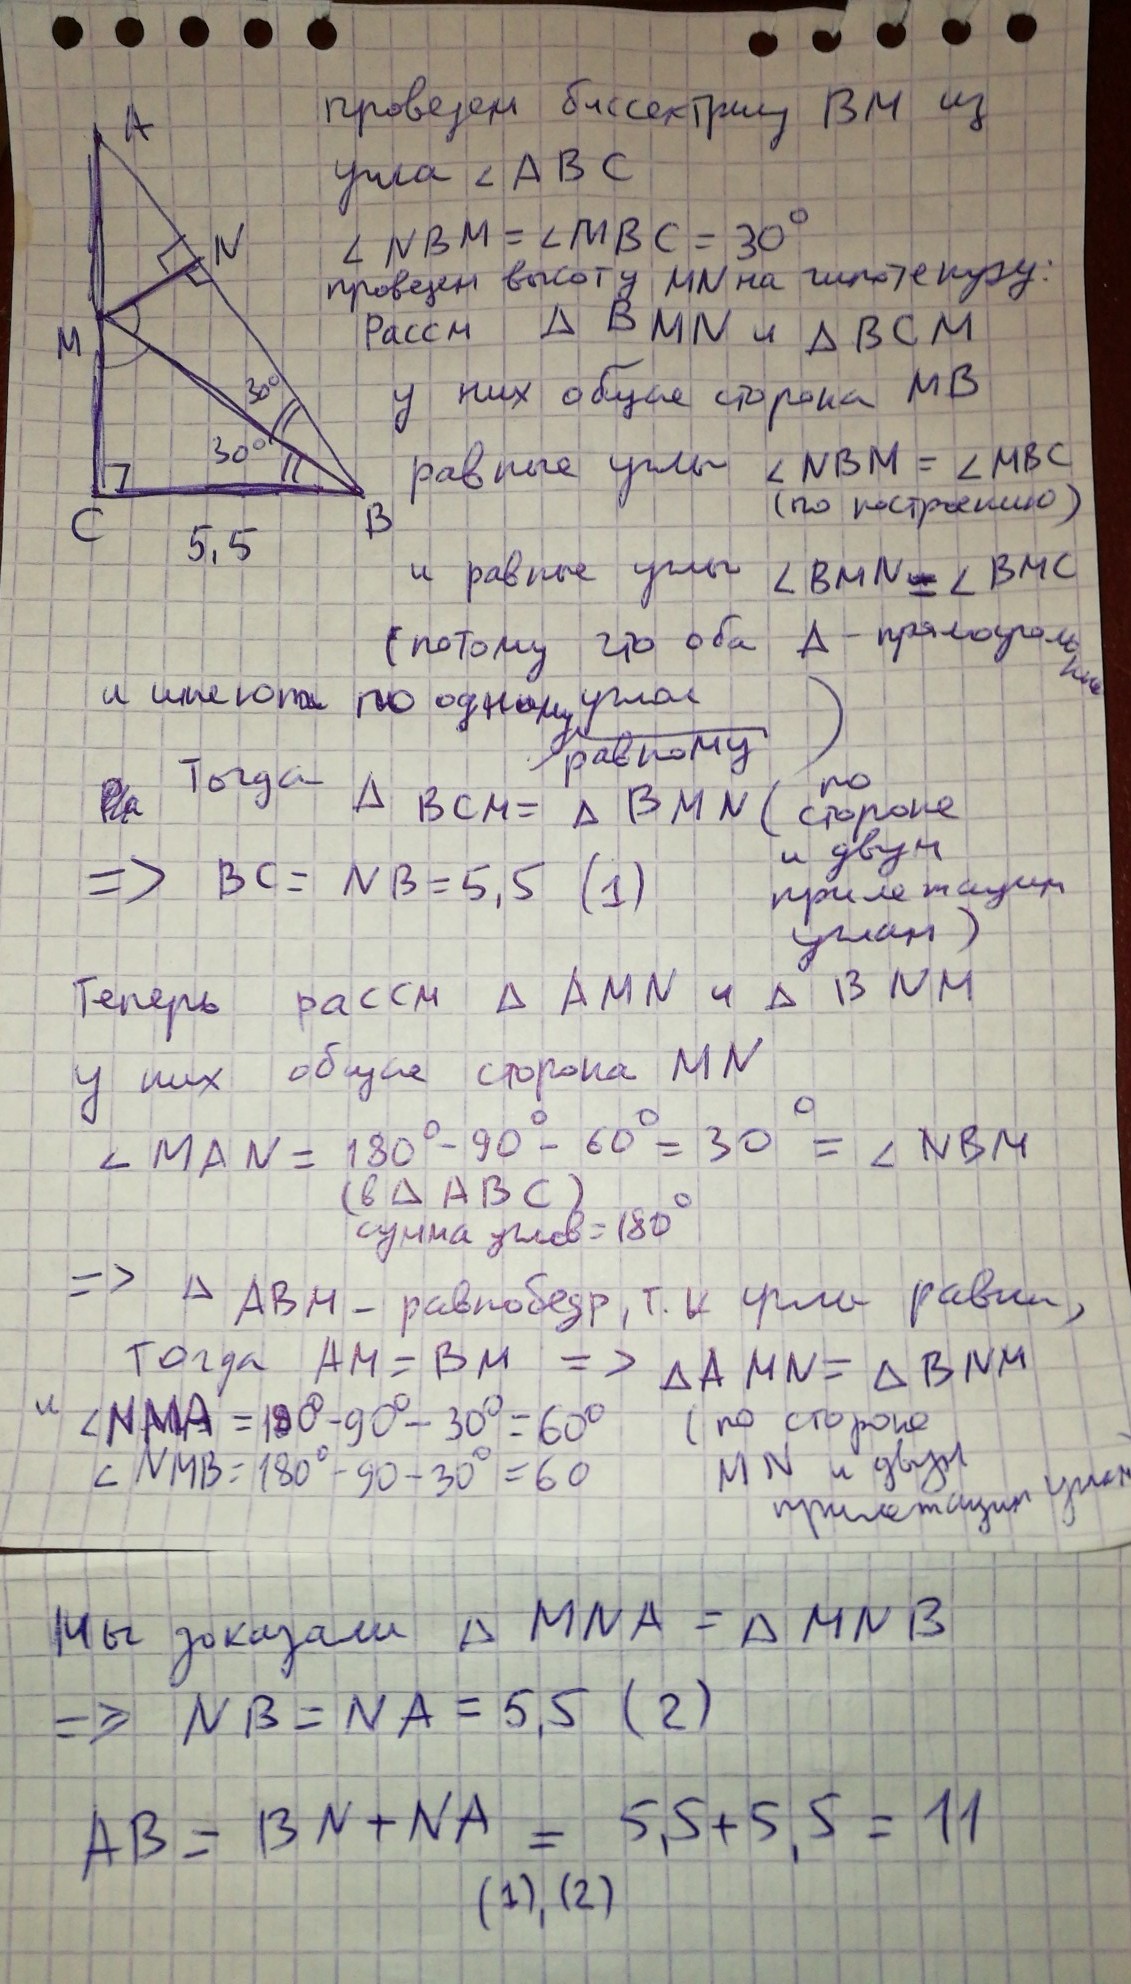 проведем биссектрису BM из
угла ∠ABC
∠NBM = ∠MBC = 30°
проведем высоту MN на гипотенузу:
Рассм △ BMN и △ BCM
у них общая сторона MB
равные углы ∠NBM = ∠MBC
(по построению)
и равные углы ∠BMN = ∠BMC
(потому что оба △ - прямоугольные
и имеют по одному равному углу)
Тогда △ BCM = △ BMN (по
стороне
и двум
прилежащим
углам)
=> BC = NB = 5,5 (1)
A
N
M
30°
30°
C
B
5,5
Теперь рассм △ AMN и △ BNM
у них общая сторона MN
∠MAN = 180° - 90° - 60° = 30° = ∠NBM
(в △ ABC)
сумма углов = 180°
=> △ ABM - равнобедр, т.к углы равны,
Тогда AM = BM => △AMN = △BNM
и ∠NMA = 180° - 90° - 30° = 60° (по стороне
∠NMB = 180° - 90 - 30° = 60 MN и двум
прилежащим углам)
Мы доказали △ MNA = △ MNB
=> NB = NA = 5,5 (2)
AB = BN + NA = 5,5 + 5,5 = 11
(1), (2)